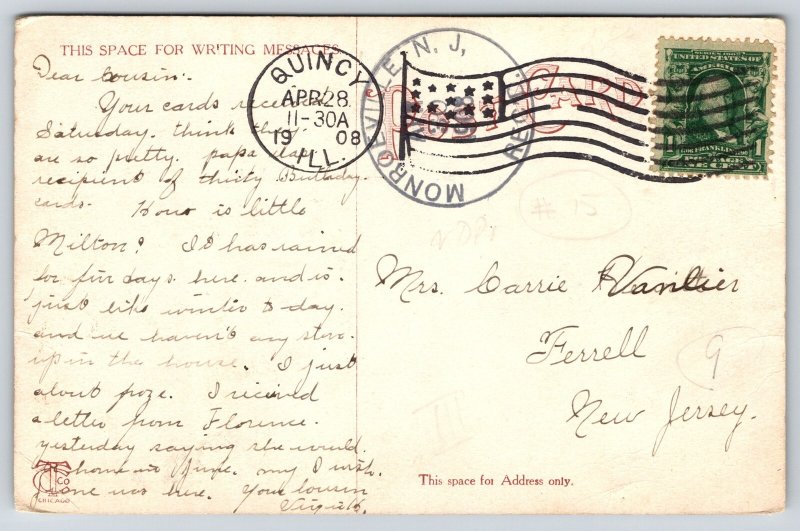 THIS SPACE FOR WRITING MESSAGES
Dear Cousin:-
Your cards received
Saturday. think they
are so pretty. papa was
recipient of thirty Birthday
cards. How is little
Milton? It has rained
for five days here and is
just like winter to-day.
and we haven't any stove
up in the house. I just
about froze. I received
a letter from Florence
yesterday saying she would
be home in June. my I wish
June was here. Your cousin
QUINCY
APR 28
11-30A
1908
ILL.
MONROEVILLE, N. J.
REC'D.
CARD
SERIES 1902
UNITED STATES OF AMERICA
FRANKLIN
POSTAGE
1
1
# 15
Mrs. Carrie Vanlier
Ferrell
New Jersey.
9
III
This space for Address only.
CO
CHICAGO